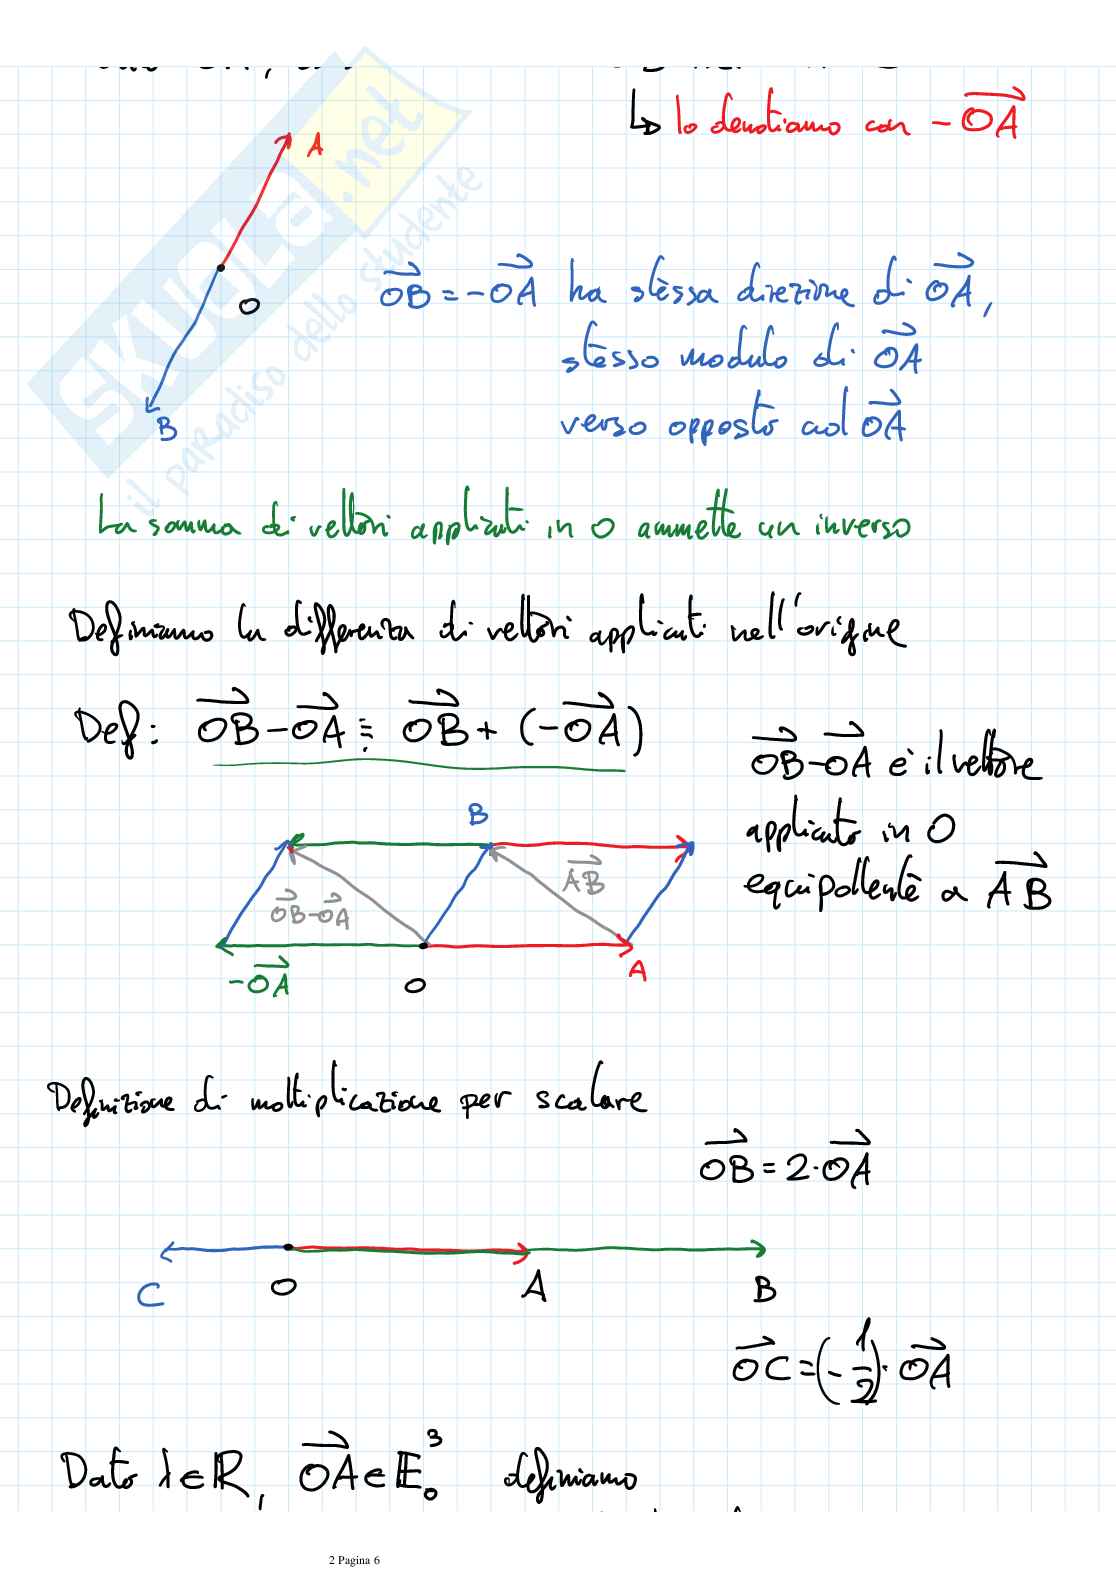 ↳ lo denotiamo con -OA
A
O
B
OB = -OA ha stessa direzione di OA,
stesso modulo di OA
verso opposto ad OA
SKUOLA.net
il paradiso dello studente
La somma di vettori applicati in O ammette un inverso
Definiamo la differenza di vettori applicati nell'origine
Def: OB - OA ≡ OB + (-OA)
OB-OA è il vettore
applicato in O
equipollente a AB
B
AB
OB-OA
-OA
O
A
Definizione di moltiplicazione per scalare
OB = 2·OA
C O A B
OC = (-1/2)·OA
Dato λ∈ℝ, OA∈E³₀ definiamo
2 Pagina 6